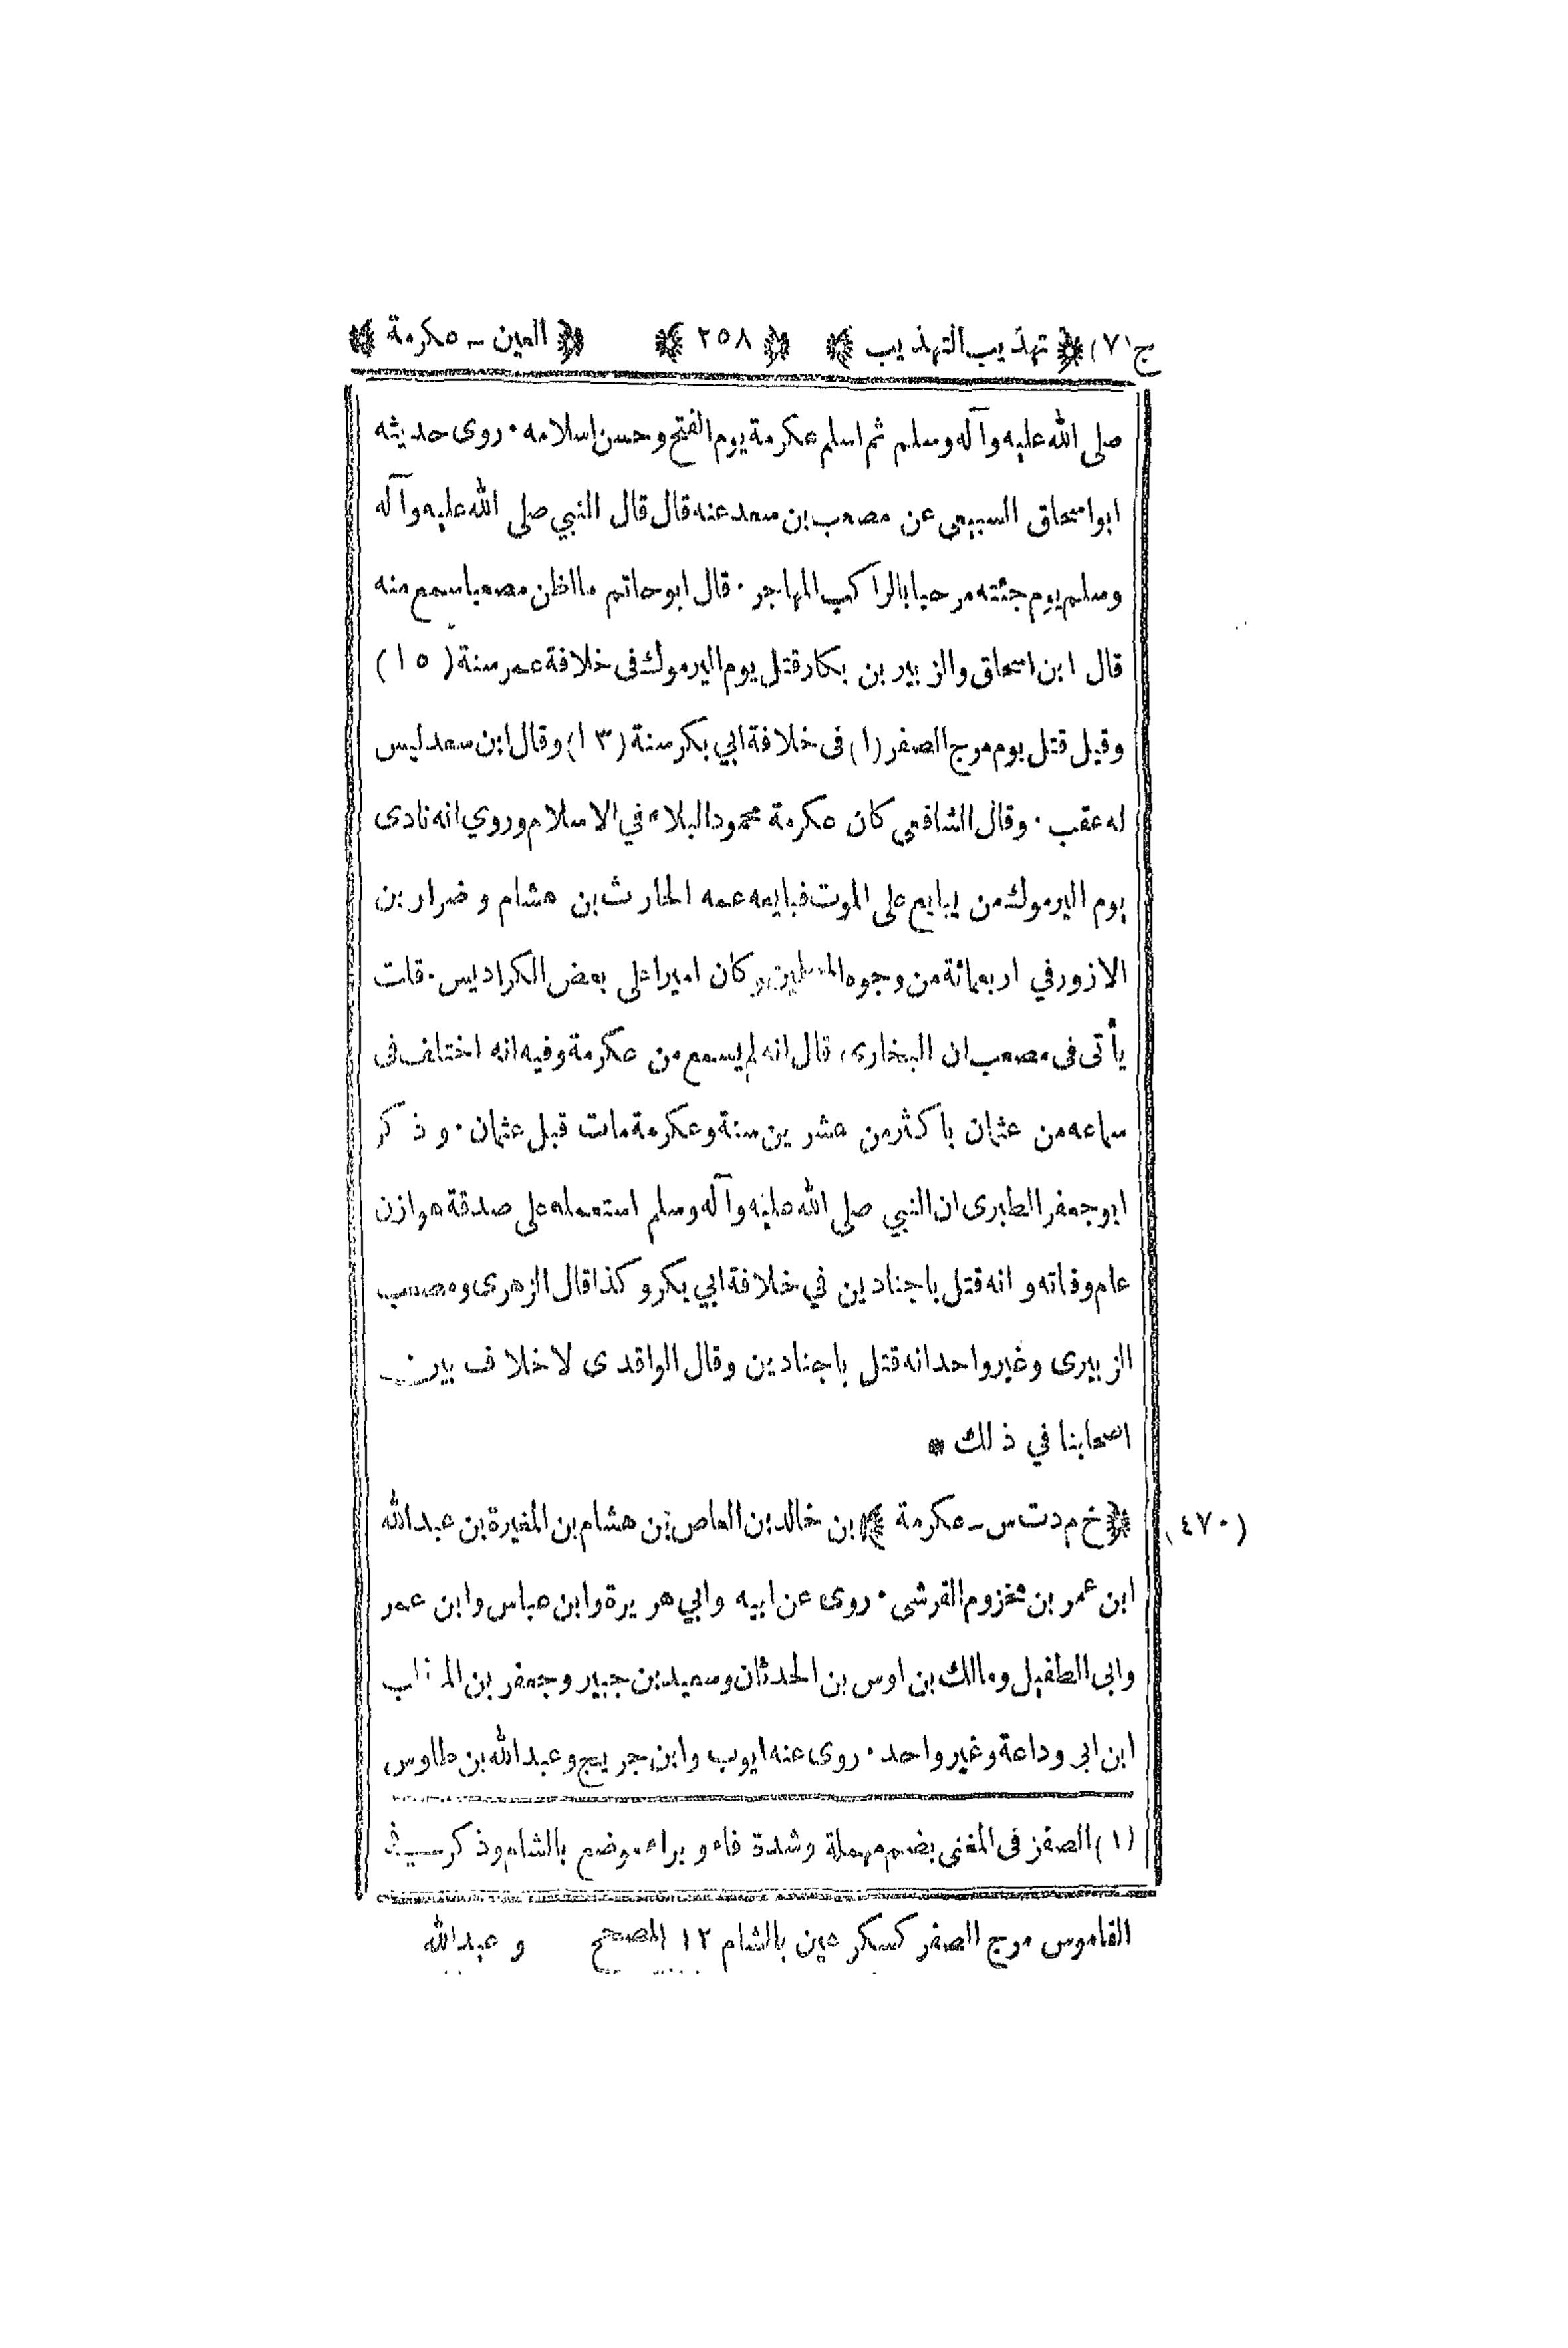 ج (٧) ﴿ تهذيب التهذيب ﴾ ﴿ ٢٥٨ ﴾ ﴿ العين - عكرمة ﴾
صلى الله عليه وآله وسلم ثم اسلم عكرمة يوم الفتح وحسن اسلامه · روى حديثه
ابو اسحاق السبيعى عن مصعب بن سعد عنه قال قال النبي صلى الله عليه وآله
وسلم يوم جئته مرحبا بالراكب المهاجر · قال ابو حاتم ما اظن مصعبا سمع منه
قال ابن اسحاق والزبير بن بكار قتل يوم اليرموك فى خلافة عمر سنة (١٥)
وقيل قتل يوم مرج الصفر (١) فى خلافة ابي بكر سنة (١٣) وقال ابن سعد ليس
له عقب · وقال الشافعى كان عكرمة محمود البلاء في الاسلام وروي انه نادى
يوم اليرموك من يبايع على الموت فبايعه عمه الحارث بن هشام وضرار بن
الازور في اربعمائة من وجوه المسلمين وكان اميرا على بعض الكراديس · قلت
يأتى فى مصعب ان البخارى قال انه لم يسمع من عكرمة وفيه انه اختلف فى
سماعه من عثمان باكثر من عشرين سنة وعكرمة مات قبل عثمان · وذكر
ابو جعفر الطبرى ان النبي صلى الله عليه وآله وسلم استعمله على صدقة هوازن
عام وفاته وانه قتل باجنادين في خلافة ابي بكر وكذا قال الزهرى ومصعب
الزبيرى وغير واحد انه قتل باجنادين وقال الواقدى لا خلاف بين
اصحابنا في ذلك *
(٤٧٠) ﴿ خ م د ت س - عكرمة ﴾ بن خالد بن العاص بن هشام بن المغيرة بن عبد الله
ابن عمر بن مخزوم القرشى · روى عن ابيه وابي هريرة وابن عباس وابن عمر
وابى الطفيل ومالك بن اوس بن الحدثان وسعيد بن جبير وجعفر بن المطلب
ابن ابى وداعة وغير واحد · روى عنه ايوب وابن جريج وعبد الله بن طاوس
(١) الصفر فى المغنى بضم مهملة وشدة فاء وبراء موضع بالشام وذكر في
القاموس مرج الصفر كسكر عين بالشام ١٢ المصحح وعبد الله